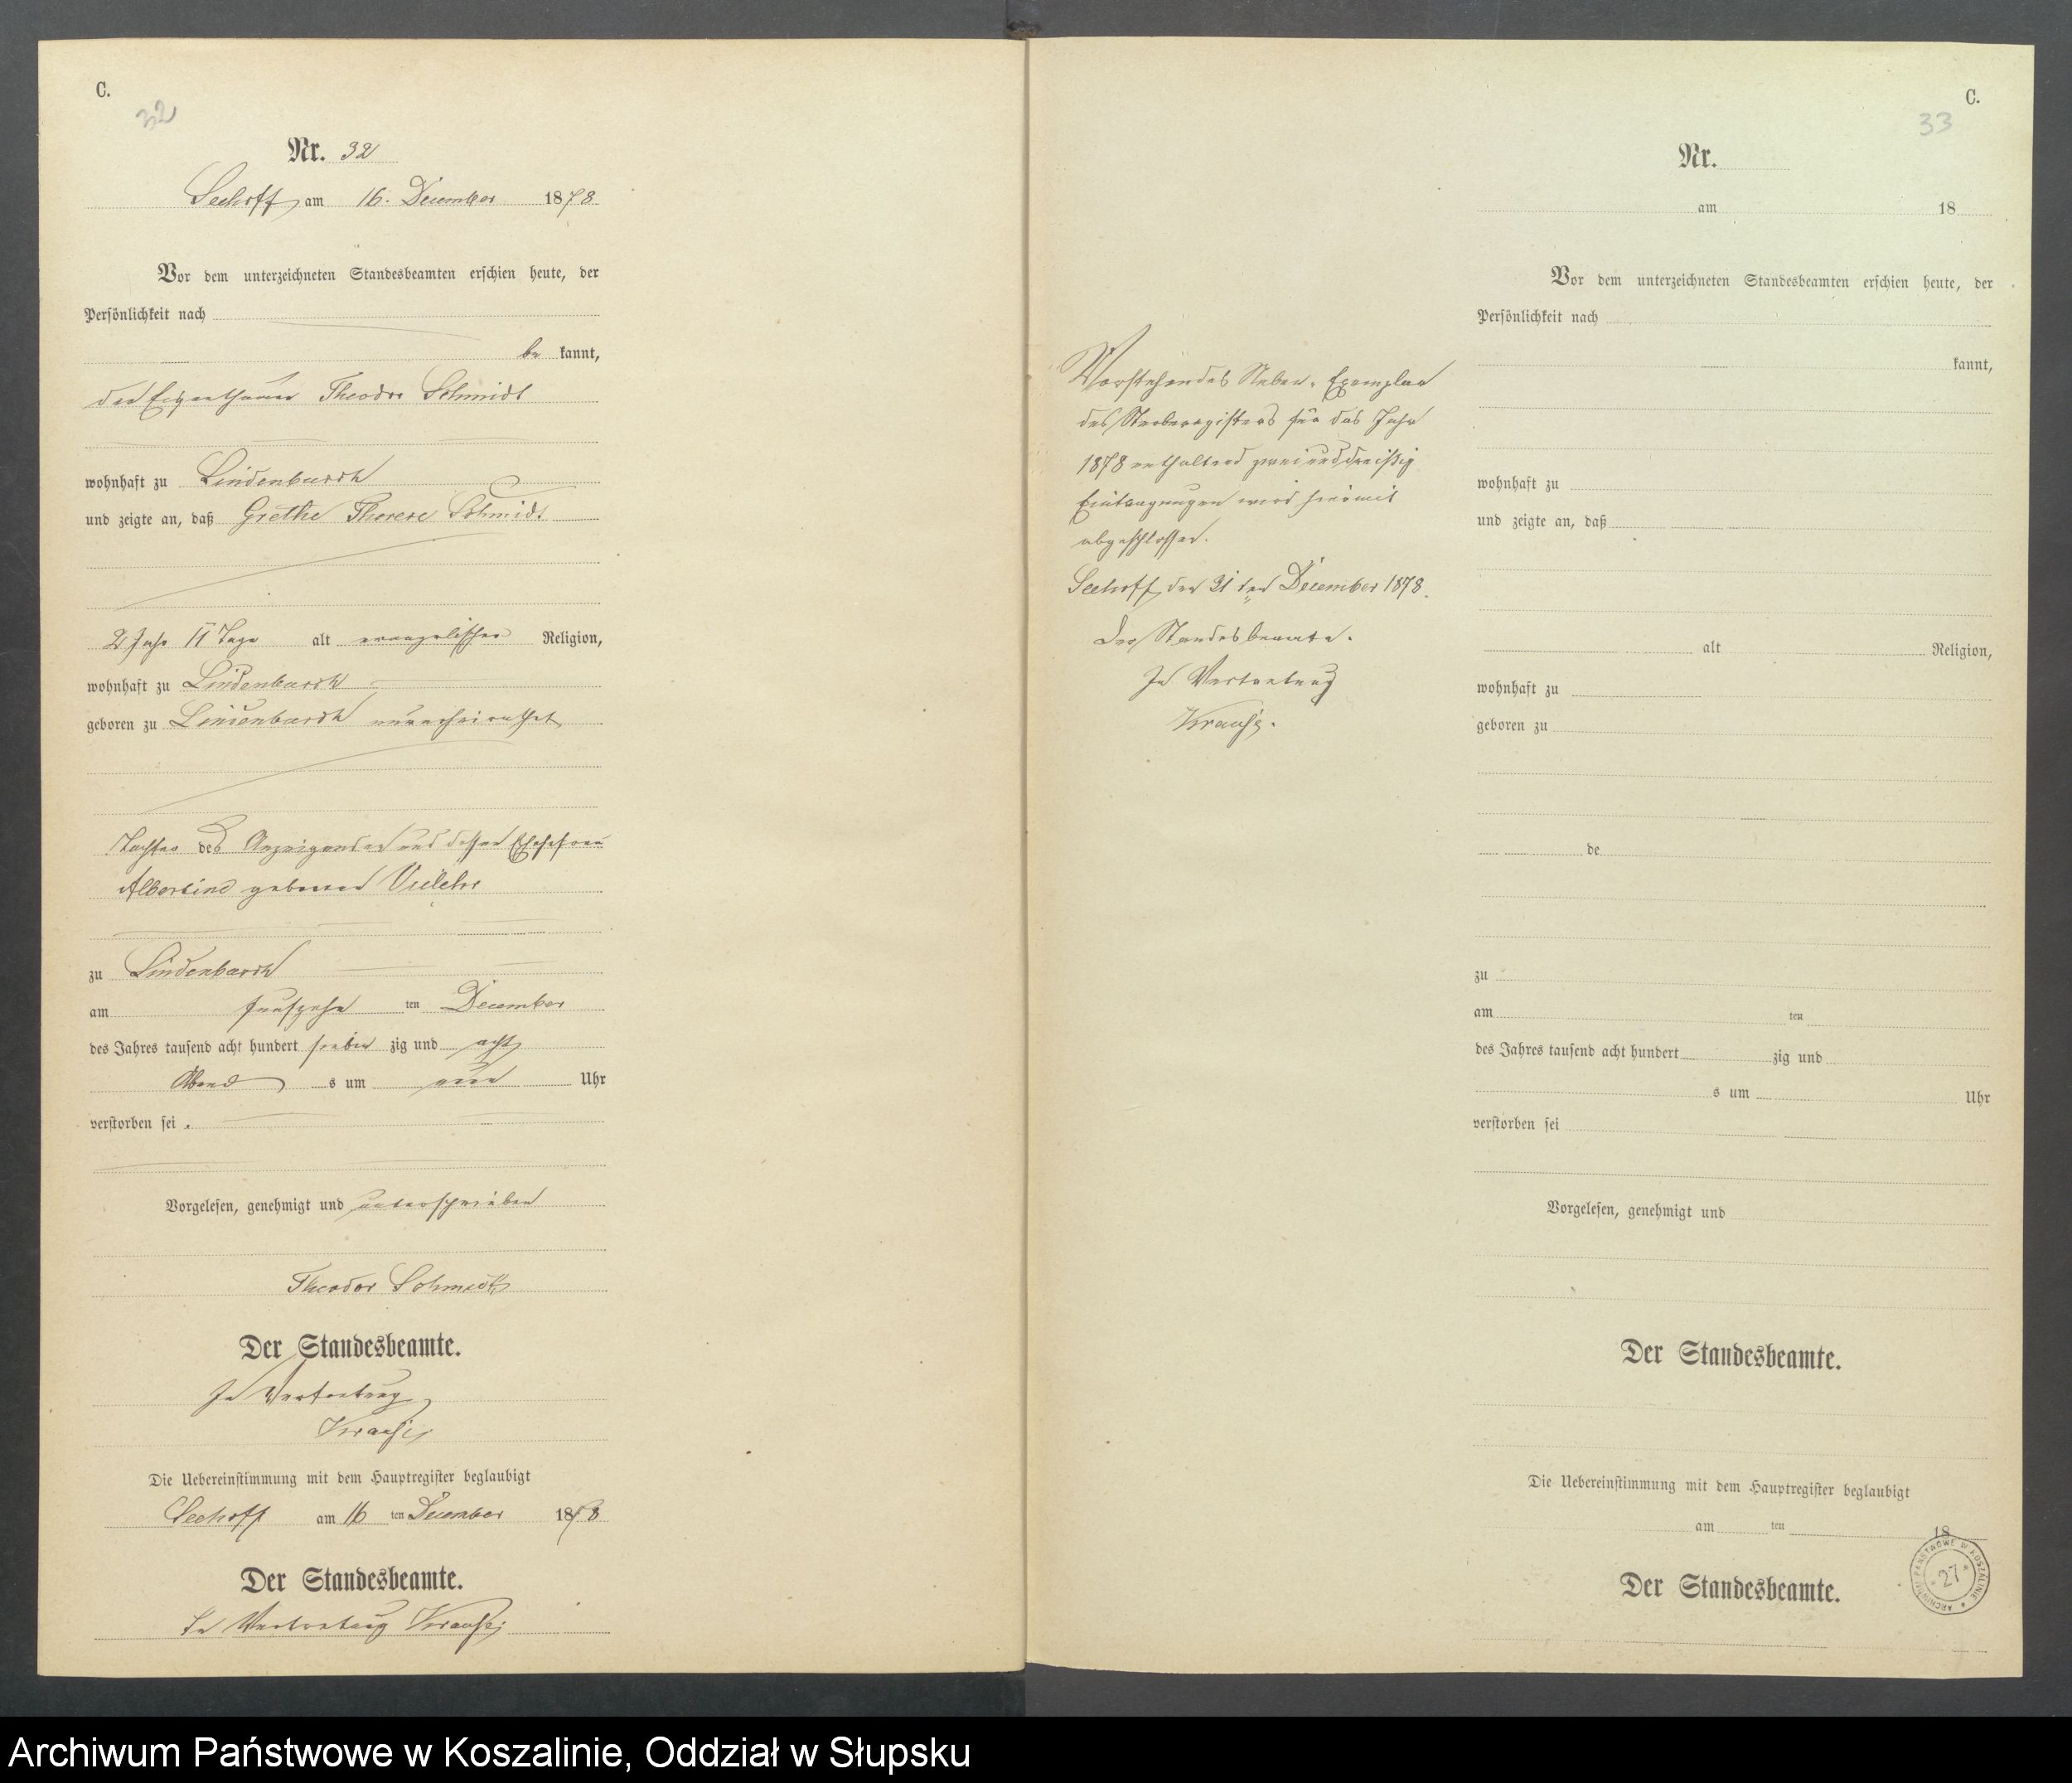 C.
32
Nr. 32
Seehoff am 16. December 1878
Vor dem unterzeichneten Standesbeamten erschien heute, der
Persönlichkeit nach
be kannt,
der Eigenthümer Theodor Schmidt
wohnhaft zu Lindenbusch
und zeigte an, daß Grethe Therese Schmidt
2 Jahr 11 Tage alt evangelischer Religion,
wohnhaft zu Lindenbusch
geboren zu Lindenbusch unverheirathet
Tochter des Anzeigenden und dessen Ehefrau
Albertine geborene
zu Lindenbusch
am fünfzehn ten December
des Jahres tausend acht hundert sieben zig und acht
Abend s um Uhr
verstorben sei.
Vorgelesen, genehmigt und unterschrieben
Theodor Schmidt
Der Standesbeamte.
In Vertretung
Krause
Die Uebereinstimmung mit dem Hauptregister beglaubigt
Seehoff am 16 ten December 1878
Der Standesbeamte.
In Vertretung Krause
Vorstehendes Neben-Exemplar
des Sterberegisters für das Jahr
1878 enthaltend zweiunddreißig
Eintragungen wird hiermit
abgeschlossen.
Seehoff, den 31ten December 1878.
Der Standesbeamte.
In Vertretung
Krause.
C.
33
Nr.
am 18
Vor dem unterzeichneten Standesbeamten erschien heute, der
Persönlichkeit nach
kannt,
wohnhaft zu
und zeigte an, daß
alt Religion,
wohnhaft zu
geboren zu
de
zu
am ten
des Jahres tausend acht hundert zig und
s um Uhr
verstorben sei
Vorgelesen, genehmigt und
Der Standesbeamte.
Die Uebereinstimmung mit dem Hauptregister beglaubigt
am ten 18
Der Standesbeamte.
ARCHIWUM PAŃSTWOWE W KOSZALINIE
27
Archiwum Państwowe w Koszalinie, Oddział w Słupsku